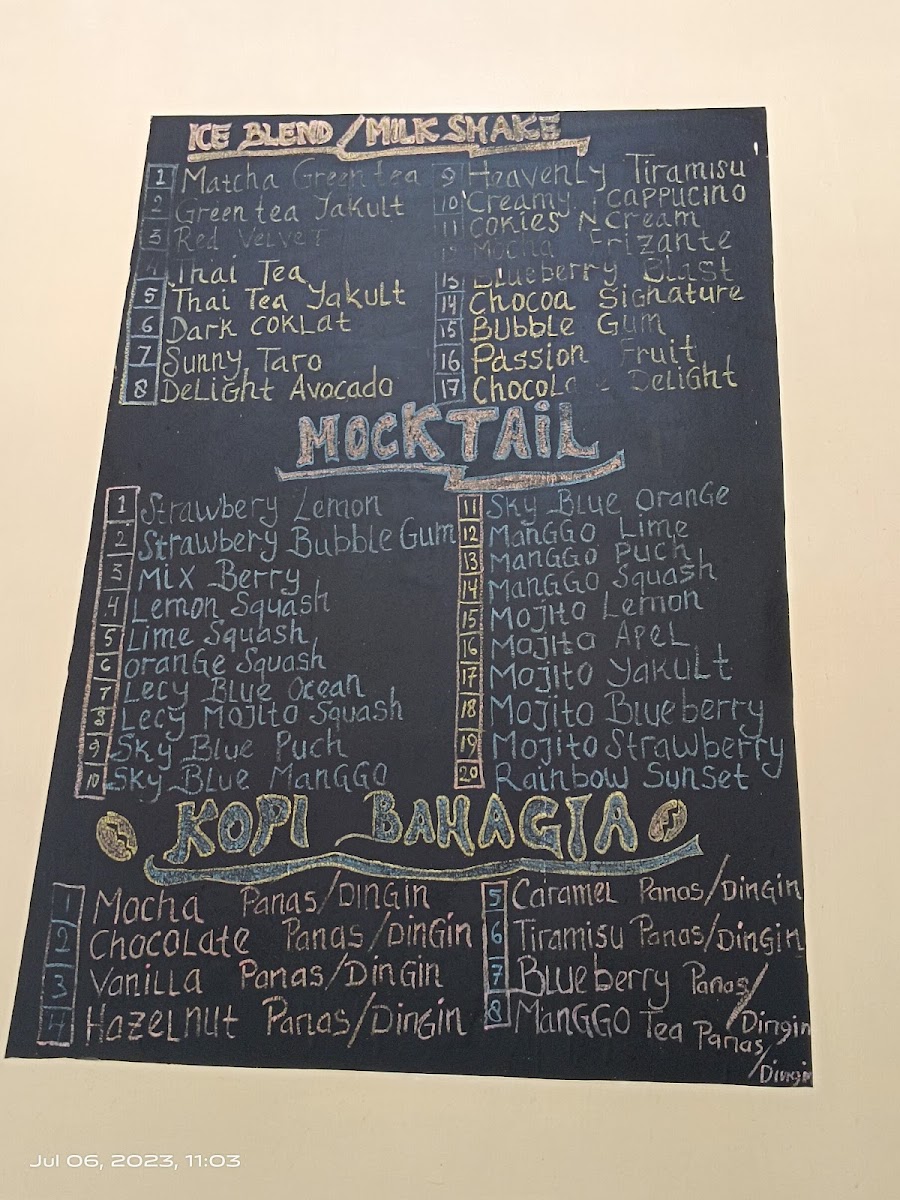 ICE BLEND / MILK SHAKE
1 Matcha Green tea
2 Green tea Yakult
3 Red Velvet
4 Thai Tea
5 Thai Tea Yakult
6 Dark COKLat
7 Sunny Taro
8 DeLiGht Avocado
9 Heavenly Tiramisu
10 Creamy CAPPUCINO
11 COKIES N Cream
Mocha Frizante
13 Blueberry Blast
14 Chocoa Signature
15 Bubble Gum
16 Passion Fruit
17 DeliGht
MOCKTAIL
1 Strawbery Lemon
2 Strawbery Bubble Gum
3 Mix Berry
4 Lemon Squash
5 Lime Squash
6 oranGe Squash
7 Lecy Blue Ocean
8 Lecy Mojito Squash
9 Sky Blue Puch
10 Sky Blue ManGGO
11 Sky Blue OranGe
12 ManGGO Lime
13 ManGGO Puch
14 ManGGO Squash
15 Mojito Lemon
16 Mojito Apel
17 Mojito Yakult
18 Mojito Blueberry
19 Mojito Strawberry
20 Rainbow Sunset
KOPI BAHAGIA
1 Mocha Panas/DinGin
2 ChocoLate Panas/DinGin
3 Vanilla Panas/DinGin
4 Hazelnut Panas/DinGin
5 Caramel Panas/DinGin
6 Tiramisu Panas/DinGin
7 Blueberry Panas/
Dingin
8 ManGGO Tea Panas/
Dingin
Jul 06, 2023, 11:03